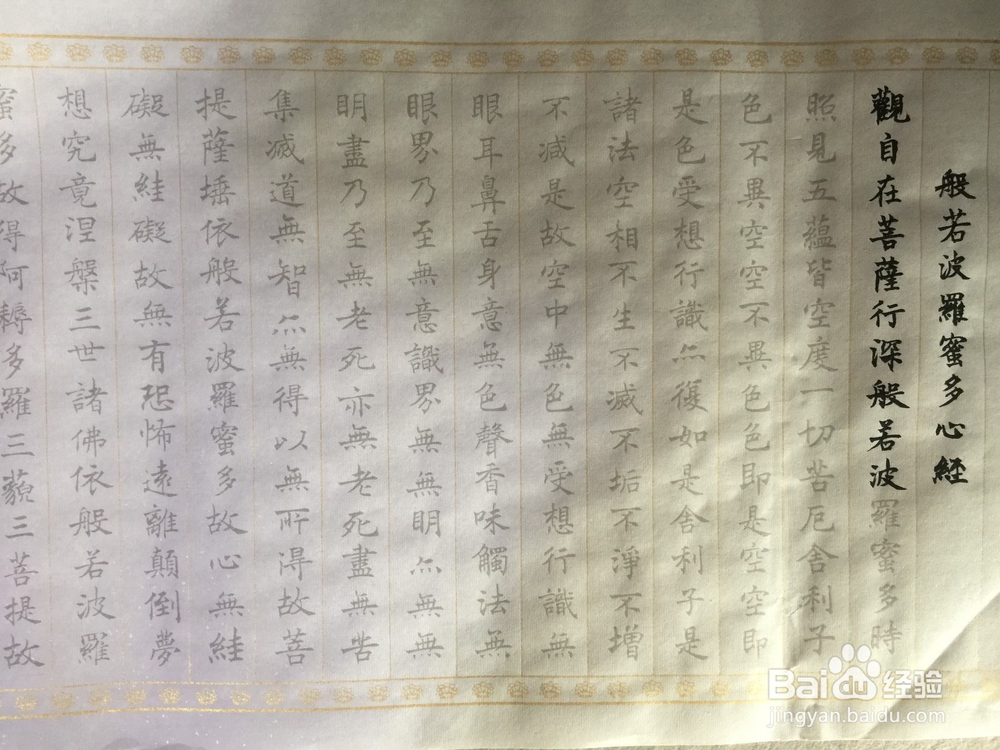 般若波羅蜜多心経
觀自在菩薩行深般若波羅蜜多時
照見五蘊皆空度一切苦厄舍利子
色不異空空不異色色即是空空即
是色受想行識亦復如是舍利子是
諸法空相不生不滅不垢不淨不增
不減是故空中無色無受想行識無
眼耳鼻舌身意無色聲香味觸法無
眼界乃至無意識界無無明亦無無
明盡乃至無老死亦無老死盡無苦
集滅道無智亦無得以無所得故菩
提薩埵依般若波羅蜜多故心無絓
礙無絓礙故無有恐怖遠離顛倒夢
想究竟涅槃三世諸佛依般若波羅
蜜多故得阿耨多羅三藐三菩提故
Baidu经验
jingyan.baidu.com